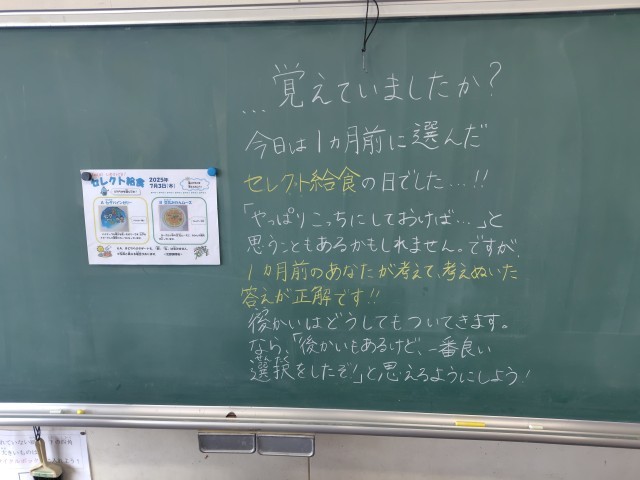 …覚えていましたか?
今日は1ヵ月前に選んだ
セレクト給食の日でした…!!
「やっぱりこっちにしておけば…」と
思うこともあるかもしれません。ですが、
1ヵ月前のあなたが考えて、考えぬいた
答えが正解です!!
後かいはどうしてもついてきます。
なら、「後かいもあるけど、一番良い
選択をしたぞ!」と思えるようにしよう!
セレクト給食
2025年
7月3日(木)